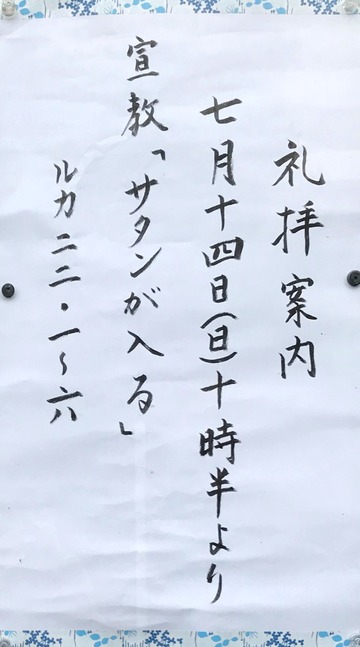 礼拝案内
七月十四日(日)十時半より
宣教「サタンが入る」
ルカ二二・一〜六